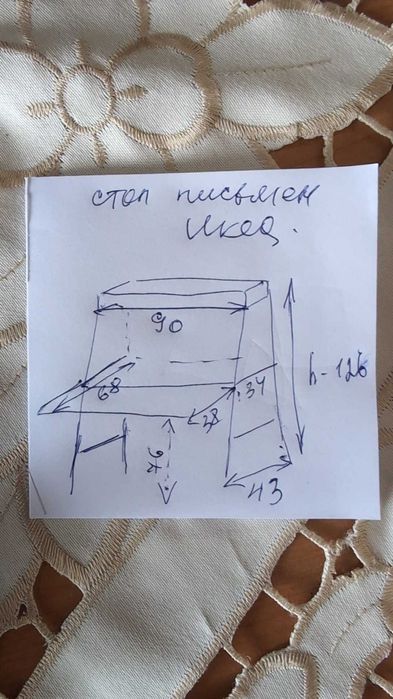 стол письмен
Икеа.
90
68
34
h-126
28
76
43